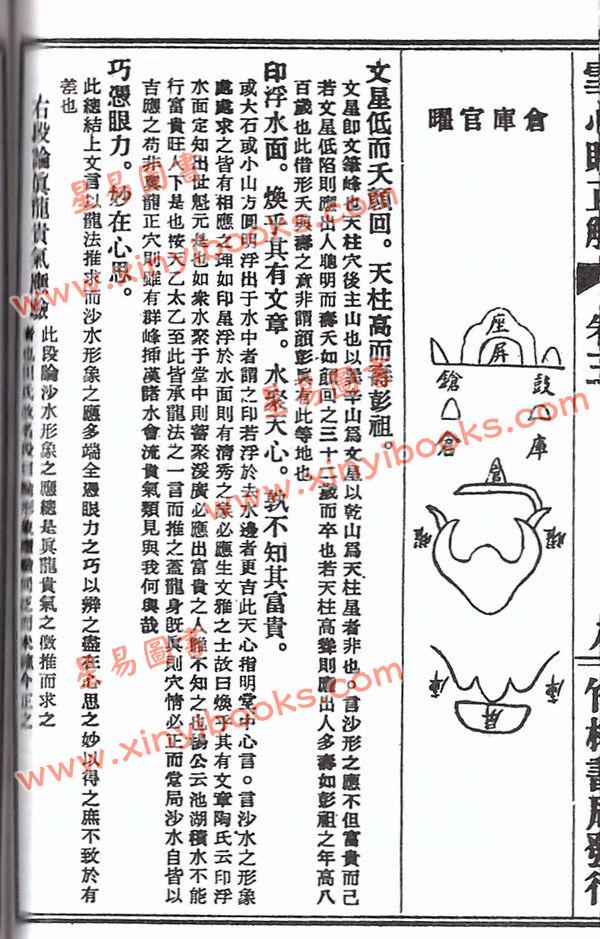 雪心賦正解
卷三
竹林書局發行
倉庫官曜
座
屏
鼓
鎗
庫
倉
曜
曜
庫
庫
屏
文星低而夭顏回。天柱高而壽彭祖。
文星卽文筆峰也天柱穴後主山也以巽辛山爲文星以乾山爲天柱星者非也。言沙形之應不但富貴而已
若文星低陷則應出人聰明而壽夭如顏回之三十二歲而卒也若天柱高聳則應出人多壽如彭祖之年高八
百歲也此借形夭與壽之意非謂顏彭旣有此等地也
印浮水面。煥乎其有文章。水聚天心。孰不知其富貴。
或大石或小山方圓明浮出于水中者謂之印若浮於去水邊者更吉此天心指明堂中心言。言沙水之形象
處處求之皆有相應之理如印星浮於水面則有清秀之業必應生文雅之士故曰煥乎其有文章陶氏云印浮
水面定知出世魁元是也如衆水聚于堂中則蓄聚深廣必應出富貴之人誰不知之也楊公云池湖積水不能
行富貴旺人下是也按天乙太乙至此皆承龍法之一言而推之蓋龍身旣眞則穴情必正而堂局沙水自皆以
吉應之苟非眞龍正穴則雖有群峰揷漢諸水會流貴氣類見與我何與哉
巧憑眼力。妙在心思。
此總結上文言以龍法推求而沙水形象之應多端全憑眼力之巧以辨之盡在心思之妙以得之庶不致於有
差也
右段論眞龍貴氣應驗
此段論沙水形象之應總是眞龍貴氣之徵推而求之
星易圖書
www.xinyibooks.com
星易圖書
www.xinyibooks.com
星易圖書
www.xinyibooks.com
星易圖書
www.xinyibooks.com